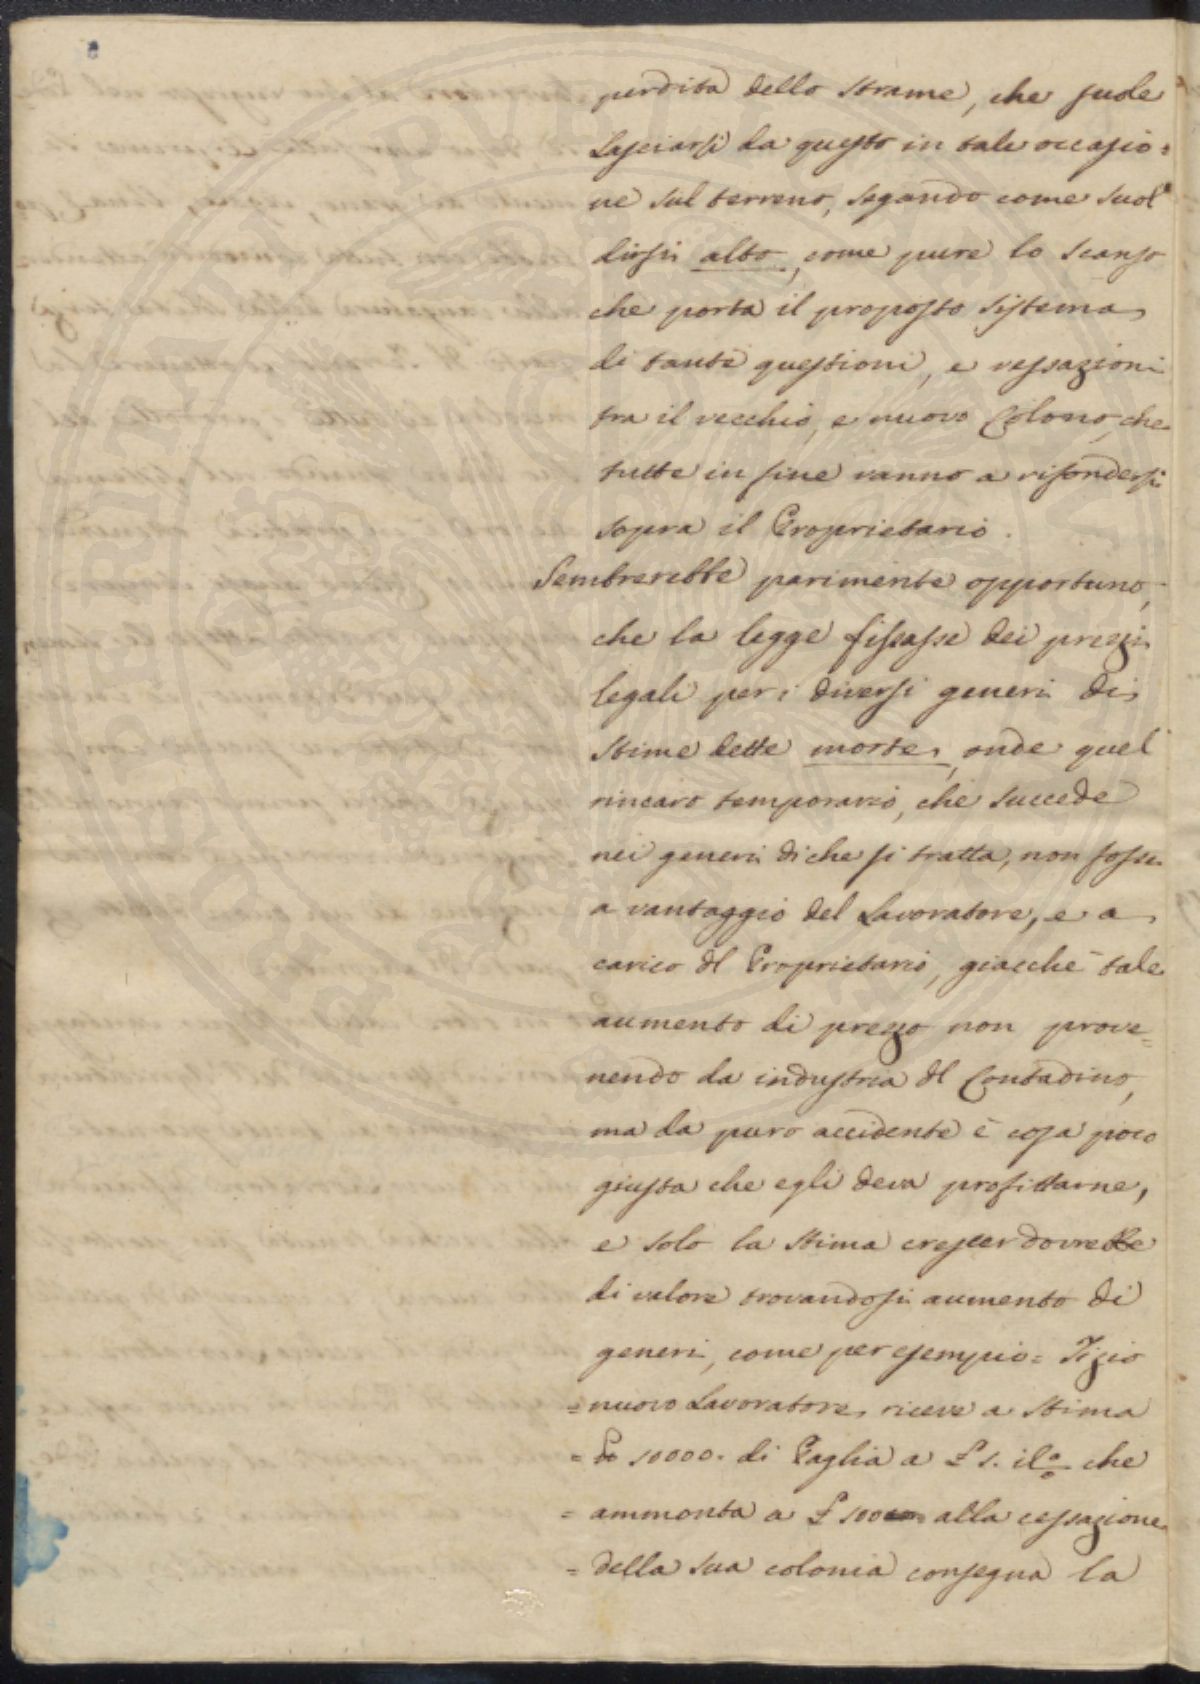 perdita dello strame, che suole
Lasciarsi da questo in tale occasio=
ne sul terreno, segando come suol
dirsi alto, come pure lo scanso
che porta il proposto sistema
di tante questioni, e vessazioni
tra il vecchio, e nuovo Colono, che
tutte in fine vanno a rifondersi
sopra il Proprietario.
Sembrerebbe parimente opportuno,
che la legge fissasse dei prezzi
legali per i diversi generi di
stime dette morte, onde quel
rincaro temporario, che succede
nei generi di che si tratta, non fosse
a vantaggio del Lavoratore, e a
carico dl Proprietario, giacchè tale
aumento di prezzo non prove=
nendo da industria dl Contadino,
ma da puro accidente è cosa poco
giusta che egli deva profittarne,
e solo la stima crescer dovrebbe
di valore trovandosi aumento di
generi, come per esempio = Tizio
= nuovo Lavoratore, riceve a stima
= 10000. di Paglia a £ 1. il % che
= ammonta a £ 100 alla cessazione
= della sua colonia consegna la